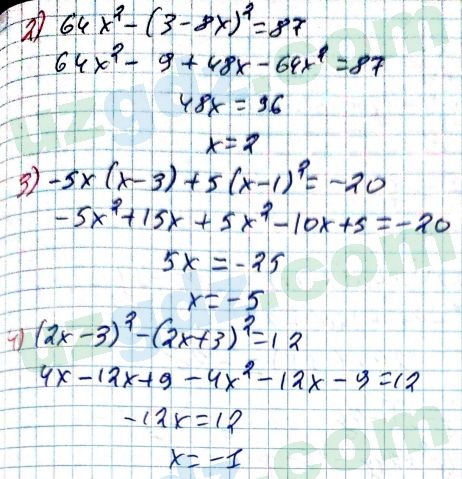 2) 64x² - (3 - 8x)² = 87
64x² - 9 + 48x - 64x² = 87
48x = 96
x = 2
3) -5x (x - 3) + 5 (x - 1)² = -20
-5x² + 15x + 5x² - 10x + 5 = -20
5x = -25
x = -5
4) (2x - 3)² - (2x + 3)² = 12
4x - 12x + 9 - 4x² - 12x - 9 = 12
-12x = 12
x = -1
uzgdz.com